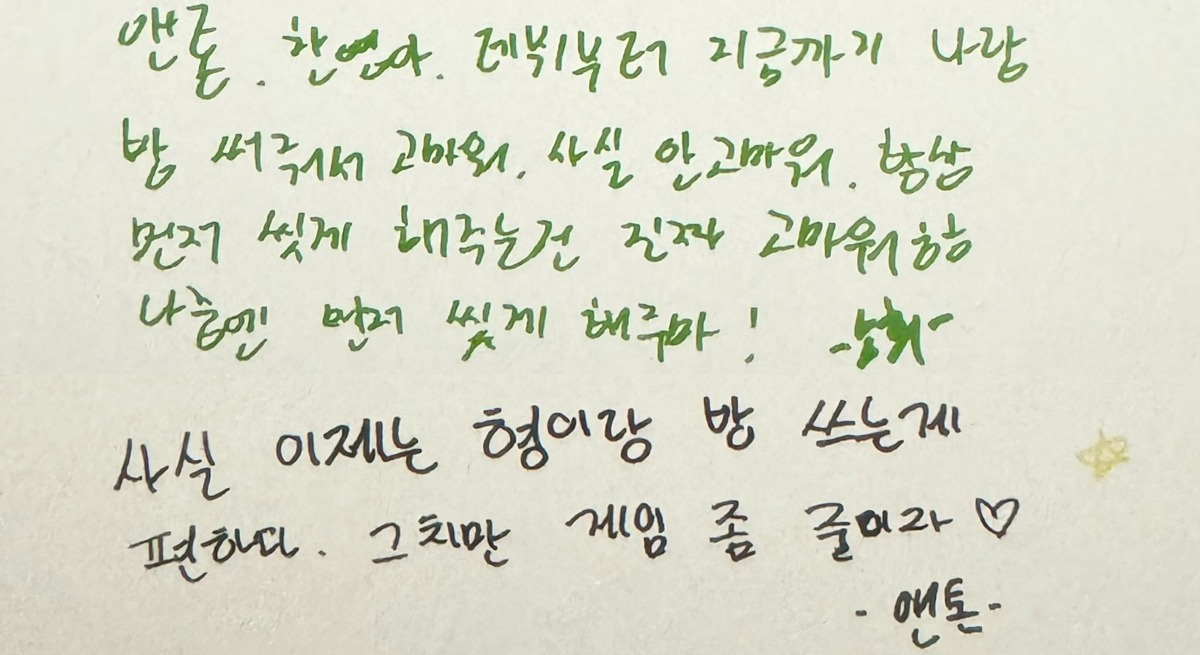 앤톤. 찬영아. 데뷔부터 지금까지 나랑
방 써줘서 고마워. 사실 안고마워. 항상
먼저 씻게 해주는건 진짜 고마워하하
나중엔 먼저 씻게 해주마!
사실 이제는 형이랑 방 쓰는게
편하다. 그치만 게임 좀 줄이자 ♡
- 앤톤 -